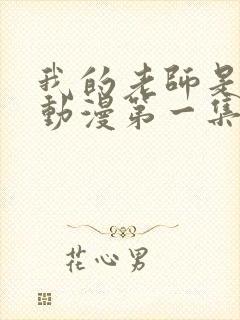 我的老師是
動漫第一集
花心男